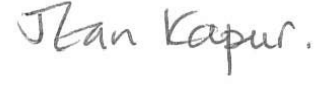 Jean Kapur.